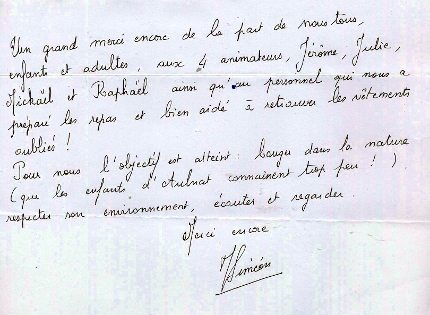 Un grand merci encore de la part de nous tous,
enfants et adultes, aux 4 animateurs, Jérôme, Julie,
Mickaël et Raphaël ainsi qu'au personnel qui nous a
préparé les repas et bien aidé à retrouver les vêtements
oubliés !
Pour nous l'objectif est atteint : bouger dans la nature
(que les enfants d'Aulnat connaissent trop peu ! )
respecter son environnement, écouter et regarder.
Merci encore
J Siméon